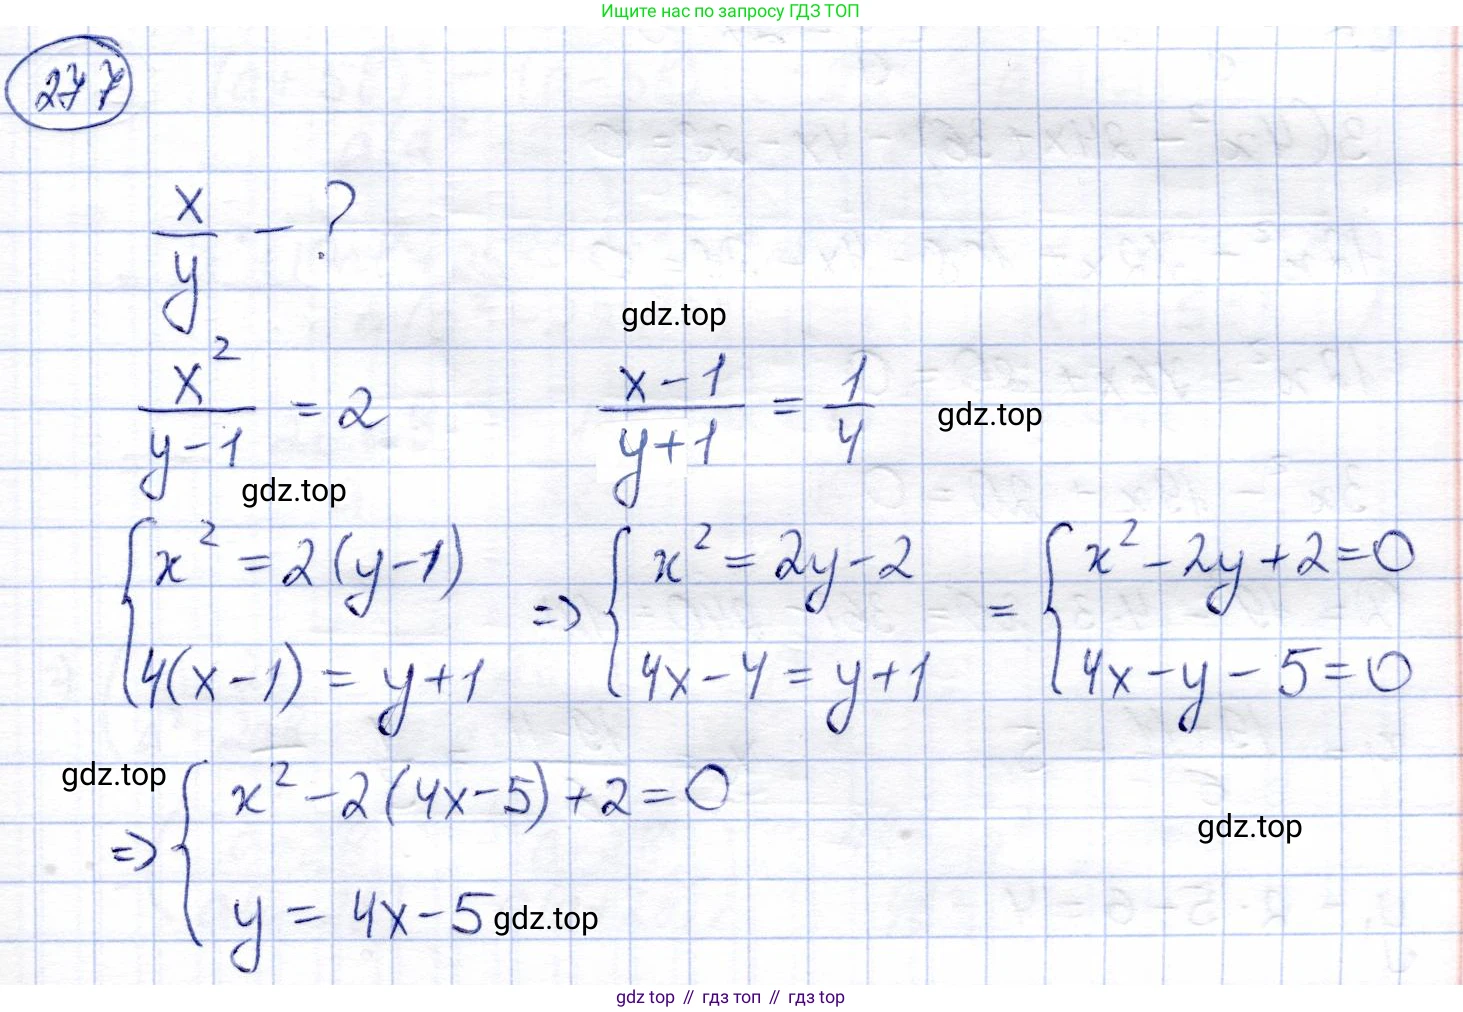 Ищите нас по запросу ГДЗ ТОП
277
x/y - ?
gdz.top
x²/(y-1) = 2    (x-1)/(y+1) = 1/4
gdz.top
gdz.top
{ x² = 2(y-1)    => { x² = 2y-2    = { x² - 2y + 2 = 0
4(x-1) = y+1    4x-4 = y+1    4x - y - 5 = 0
gdz.top
=> { x² - 2(4x-5) + 2 = 0
gdz.top
y = 4x-5
gdz.top
gdz top // гдз топ // гдз top